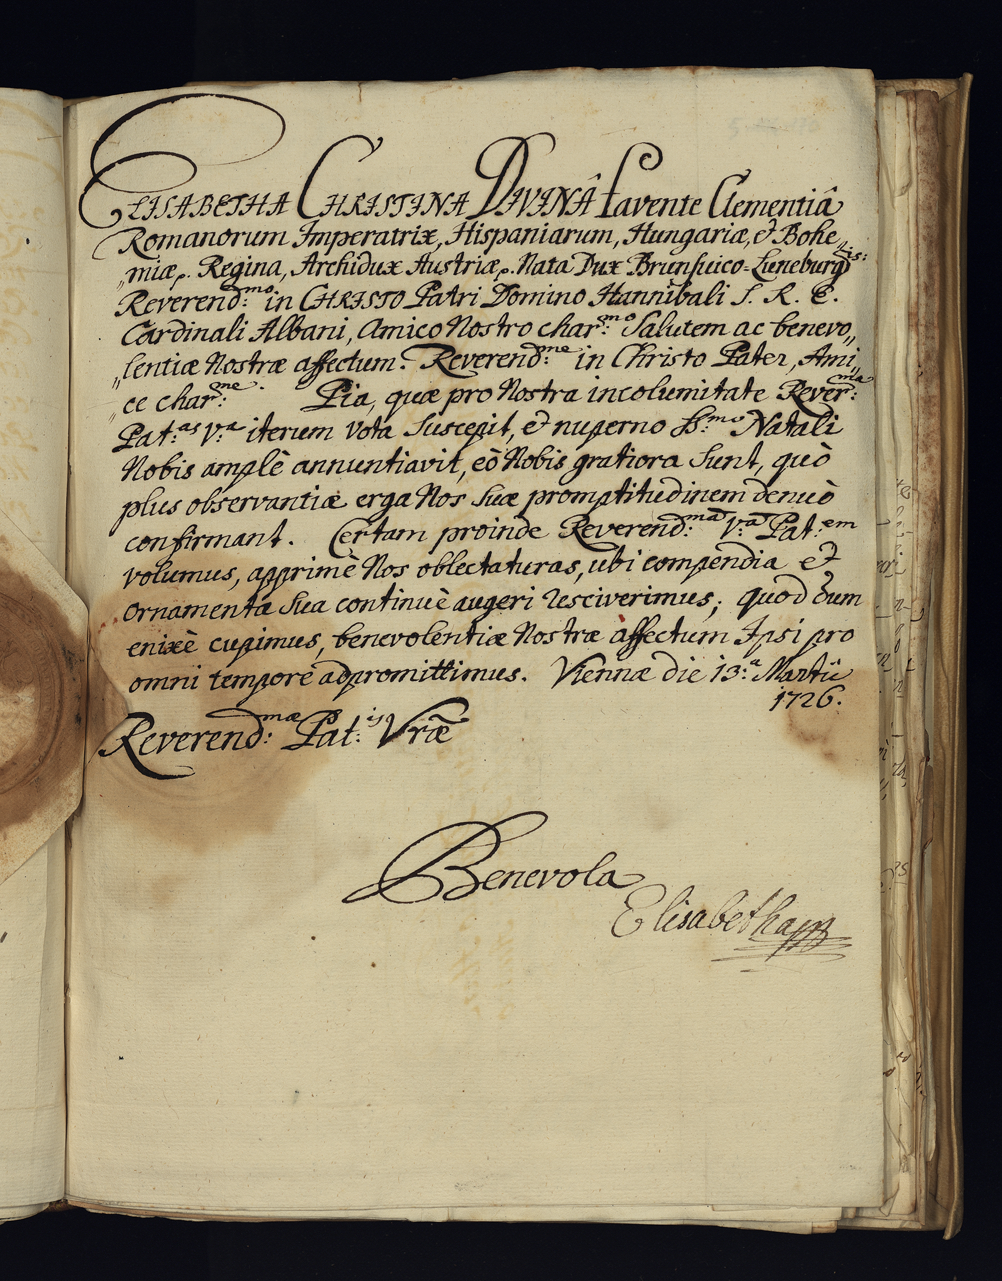 ELISABETHA CHRISTINA DIVINÂ favente Clementiâ
Romanorum Imperatrix, Hispaniarum, Hungariæ, & Bohe„
„miæ. Regina, Archidux Austriæ. Nata Dux Brunsuico-Luneburg:is:
Reverend:mo in CHRISTO Patri Domino Hannibali S. R. E.
Cardinali Albani, Amico Nostro char:mo Salutem ac benevo„
„lentiæ Nostræ affectum. Reverend:me in Christo Pater, Ami„
„ce char:me. Pia, quæ pro Nostra incolumitate Rever:ma
Pat:as V:a iterum vota suscepit, & nuperno Ss:mo Natali
Nobis amplè annuntiavit, eò Nobis gratiora sunt, quò
plus observantiæ erga Nos suæ promptitudinem denuò
confirmant. Certam proinde Reverend:mam V:am Pat:em
volumus, apprimè Nos oblectaturas, ubi compendia et
ornamenta sua continuè augeri resciverimus; quod dum
enixè cupimus, benevolentiæ Nostræ affectum Ipsi pro
omni tempore adpromittimus. Viennæ die 13:a Martii
1726.
Reverend:mæ Pat:is Vræ
Benevola
Elisabetha